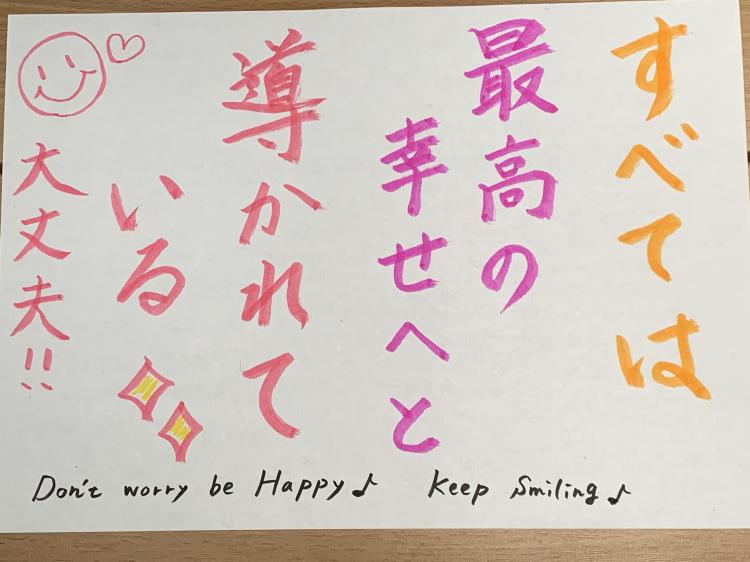 すべては
最高の
幸せへと
導かれて
いる
大丈夫!!
Don't worry be Happy♪ Keep Smiling♪